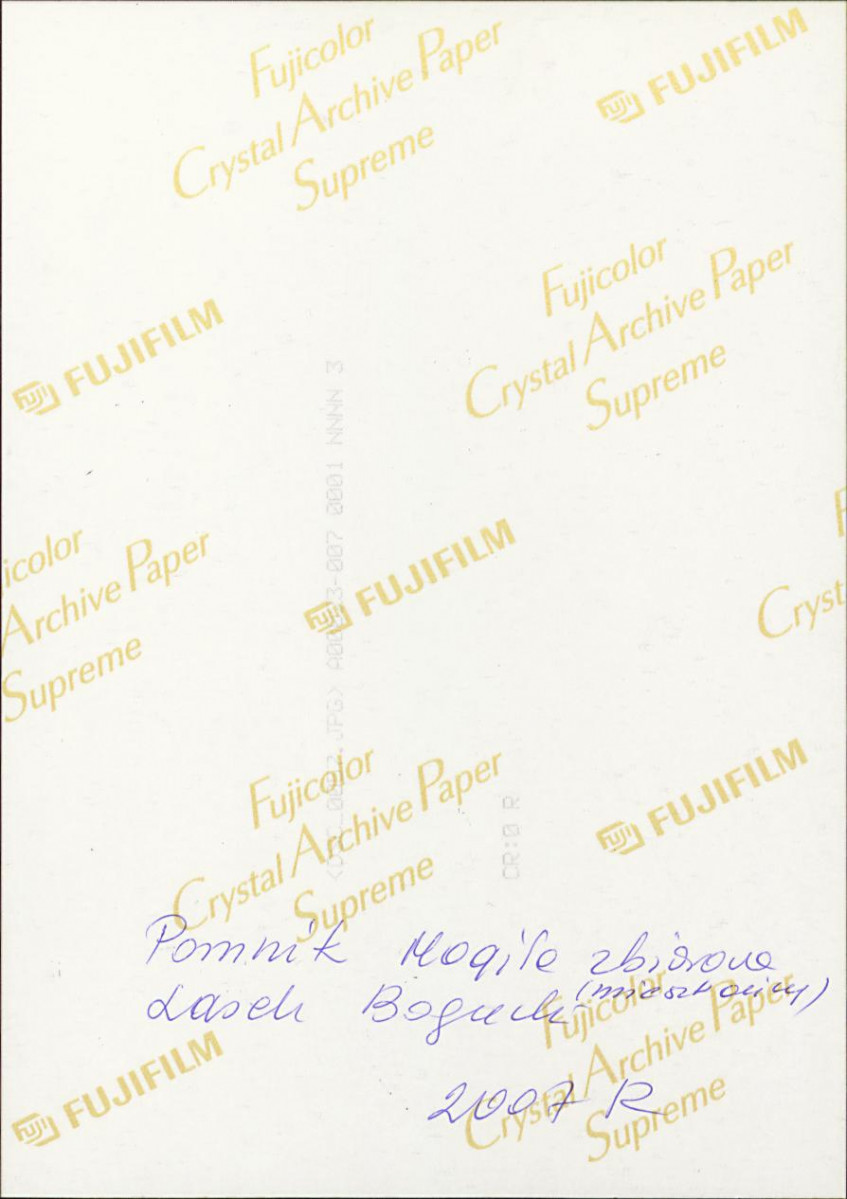 Fujicolor
Crystal Archive Paper
Supreme
FUJI FUJIFILM
Fujicolor
Crystal Archive Paper
Supreme
FUJI FUJIFILM
icolor
Archive Paper
Supreme
FUJI FUJIFILM
F
Cryst
NNNN 3
0001
-007
.JPG>
CR:0 R
Fujicolor
Crystal Archive Paper
Supreme
FUJI FUJIFILM
Pomnik Mogiła zbiorowa
Lasek Bogucki (mieszkaniny)
Fujicolor
Crystal Archive Paper
Supreme
FUJI FUJIFILM
2007 R